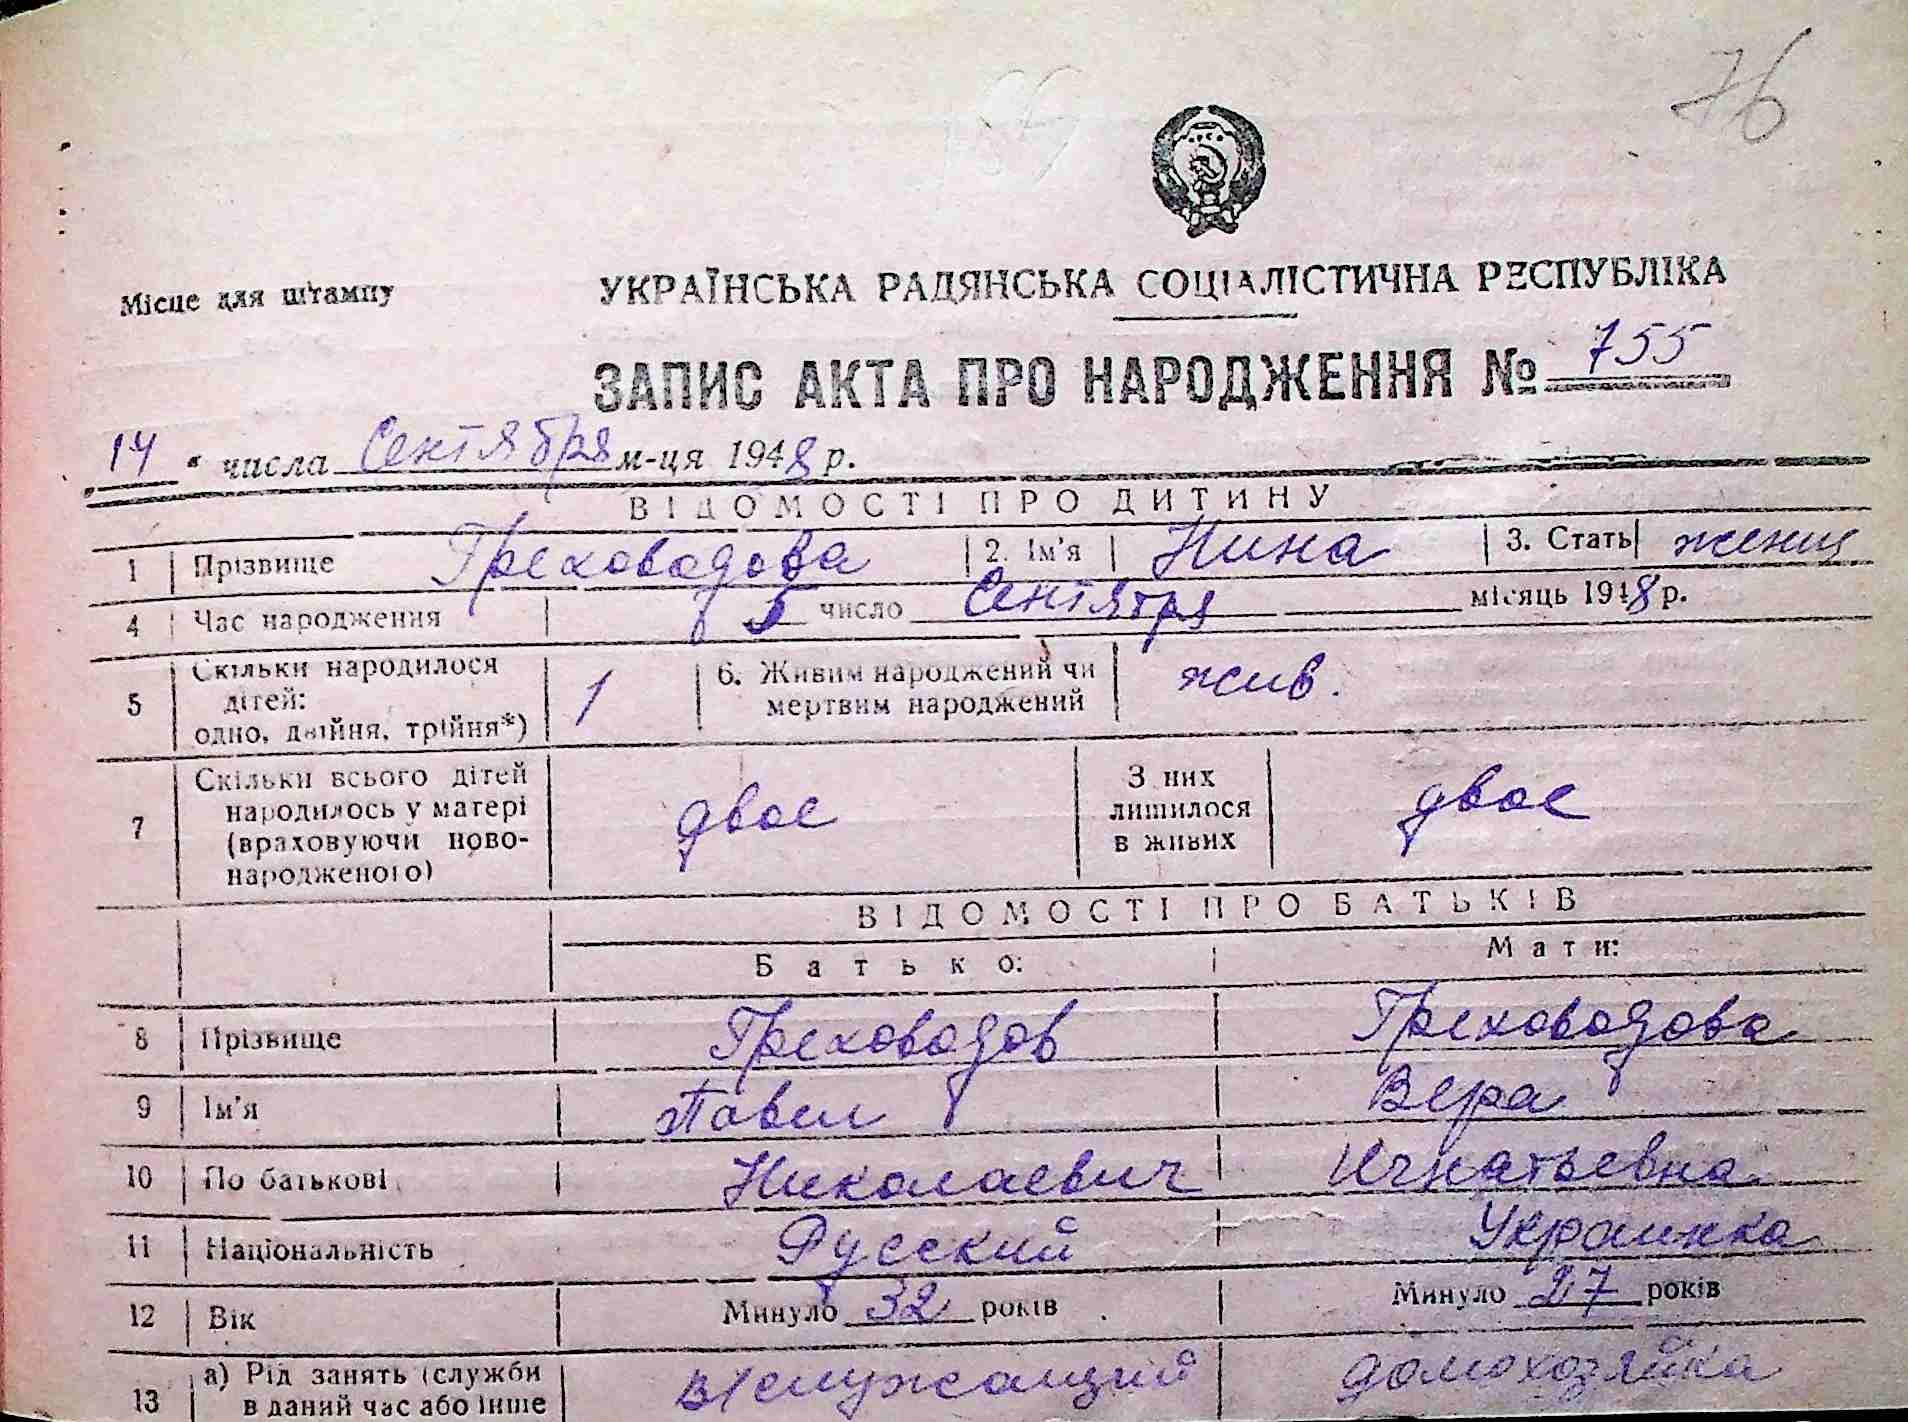 76
Місце для штампу
УКРАЇНСЬКА РАДЯНСЬКА СОЦІАЛІСТИЧНА РЕСПУБЛІКА
ЗАПИС АКТА ПРО НАРОДЖЕННЯ № 755
14 " числа Сентября м-ця 1948 р.
ВІДОМОСТІ ПРО ДИТИНУ
1 Прізвище Греховодова 2. Ім'я Нина 3. Стать женщ
4 Час народження 5 число Сентября місяць 1948 р.
5 Скільки народилося дітей: одно, двійня, трійня*) 1 6. Живим народжений чи мертвим народжений жив.
7 Скільки всього дітей народилось у матері (враховуючи ново-народженого) двое З них лишилося в живих двое
ВІДОМОСТІ ПРО БАТЬКІВ
Батько: Мати:
8 Прізвище Греховодов Греховодова
9 Ім'я Павел Вера
10 По батькові Николаевич Игнатьевна
11 Національність Русский Украинка
12 Вік Минуло 32 років Минуло 27 років
13 а) Рід занять (служби в даний час або інше в/служащий домохозяйка